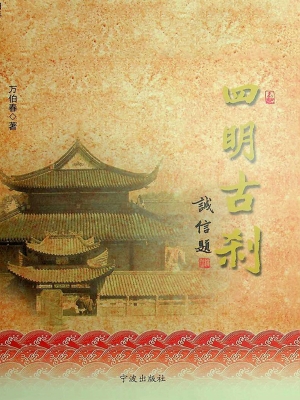 四明古刹
誠信题
万伯春◇著
宁波出版社